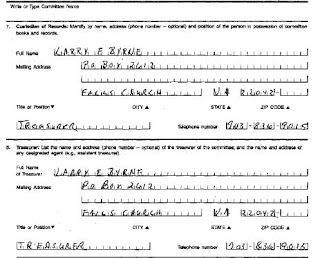 Write or Type Committee Name
7. Custodian of Records: Identify by name, address (phone number – optional) and position of the person in possession of committee
books and records.
Full Name LARRY E BYRNE
Mailing Address P.O. BOX 2612
FALLS CHURCH VA 22042-
Title or Position ▼ CITY ▲ STATE ▲ ZIP CODE ▲
TREASURER Telephone number 703-836-9015
8. Treasurer: List the name and address (phone number – optional) of the treasurer of the committee; and the name and address of
any designated agent (e.g., assistant treasurer).
Full Name
of Treasurer LARRY E BYRNE
Mailing Address P.O. BOX 2612
FALLS CHURCH VA 22042-
Title or Position ▼ CITY ▲ STATE ▲ ZIP CODE ▲
TREASURER Telephone number 703-836-9015